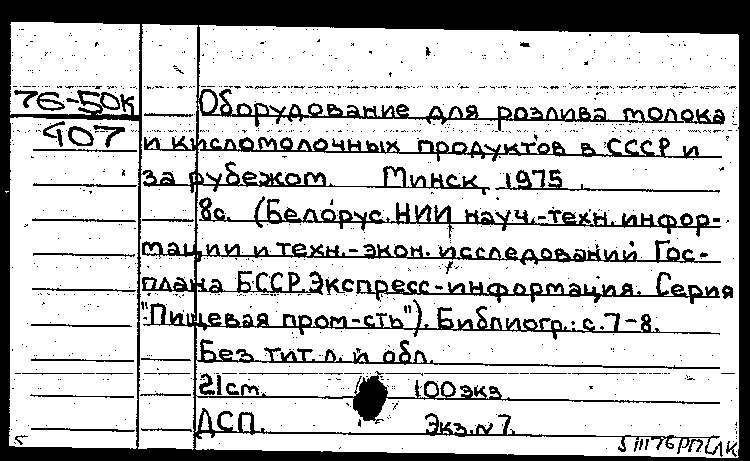 76-50к
407
Оборудование для розлива молока
и кисломолочных продуктов в СССР и
за рубежом. Минск, 1975.
8с. (Белорус.НИИ науч.-техн.инфор-
мации и техн.-экон.исследований Гос-
плана БССР.Экспресс-информация. Серия
"Пищевая пром-сть"). Библиогр.: с.7-8.
Без тит.л. и обл.
21ст. 100экз.
ДСП. Экз.№7.